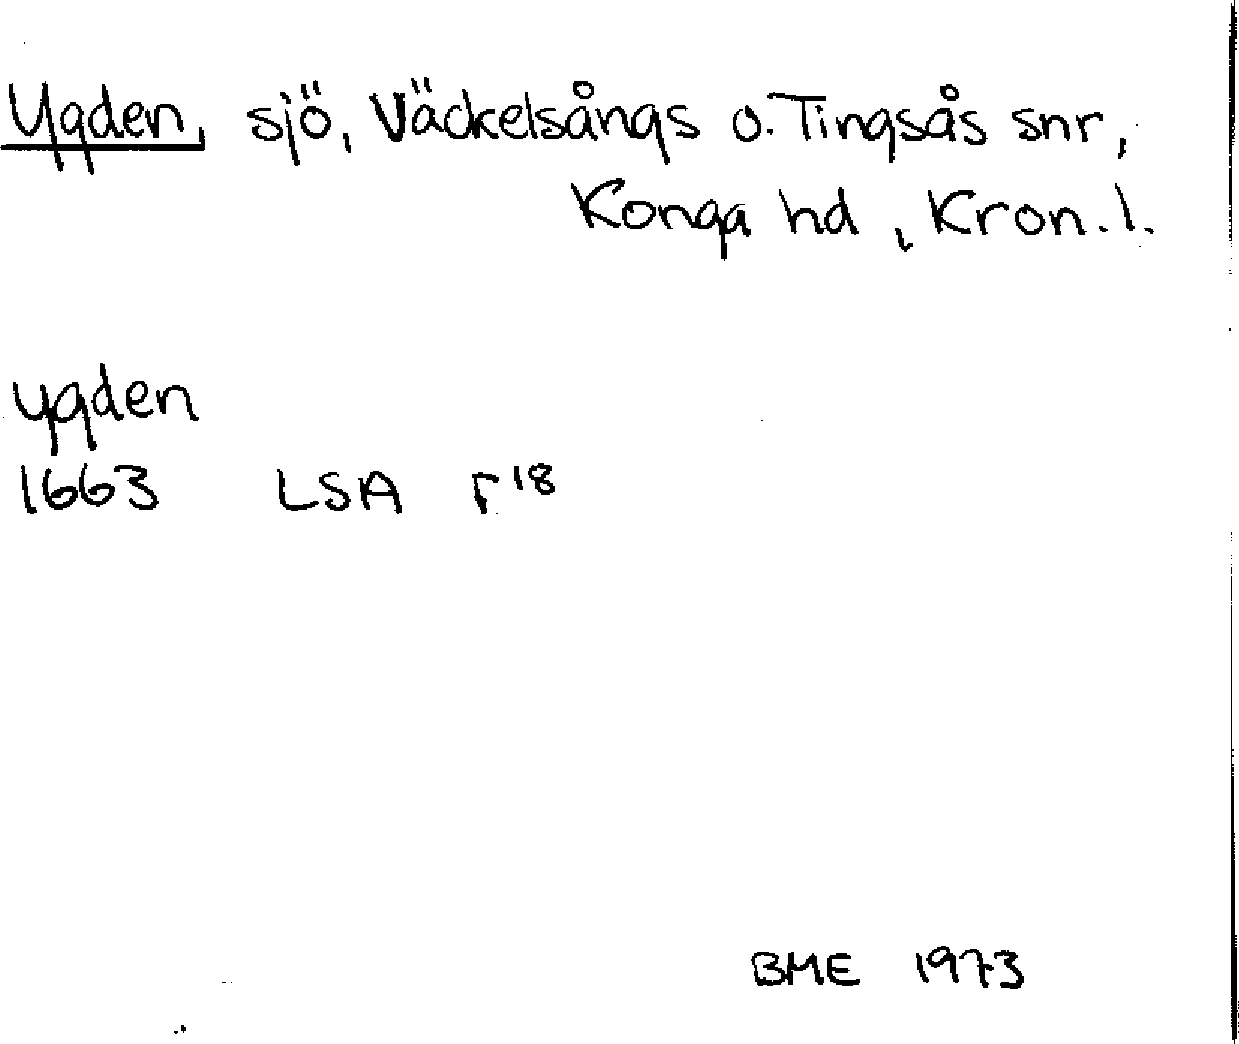 Ygden, sjö, Väckelsångs o. Tingsås snr,
Konga hd, Kron.l.
ygden
1663 LSA F18
BME 1973